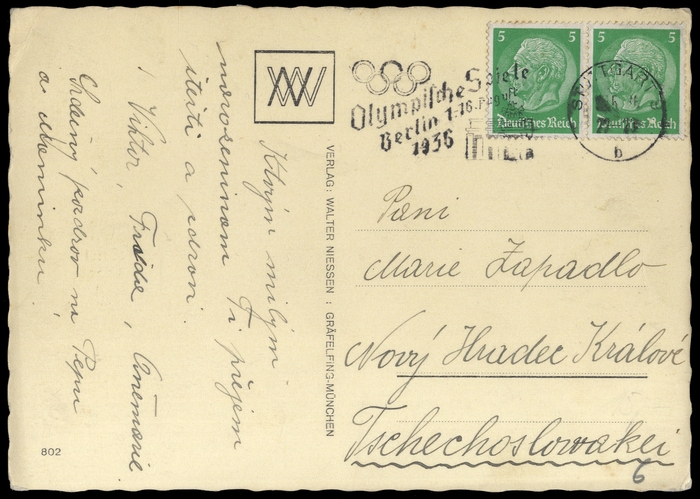 K Tvým milým
narozeninám Ti přejem
štěstí a zdraví
Viktor, Frída, Annemarie
Srdečný pozdrav na Pepu
a Maminku!
802
VERLAG: WALTER NIESSEN : GRÄFELFING-MÜNCHEN
Olympische Spiele
Berlin 1.-16. August
1936
STUTTGART
b
5 5
Deutsches Reich
5 5
Deutsches Reich
Paní
Marie Zapadlo
Nový Hradec Králové
Tschechoslowakei
6